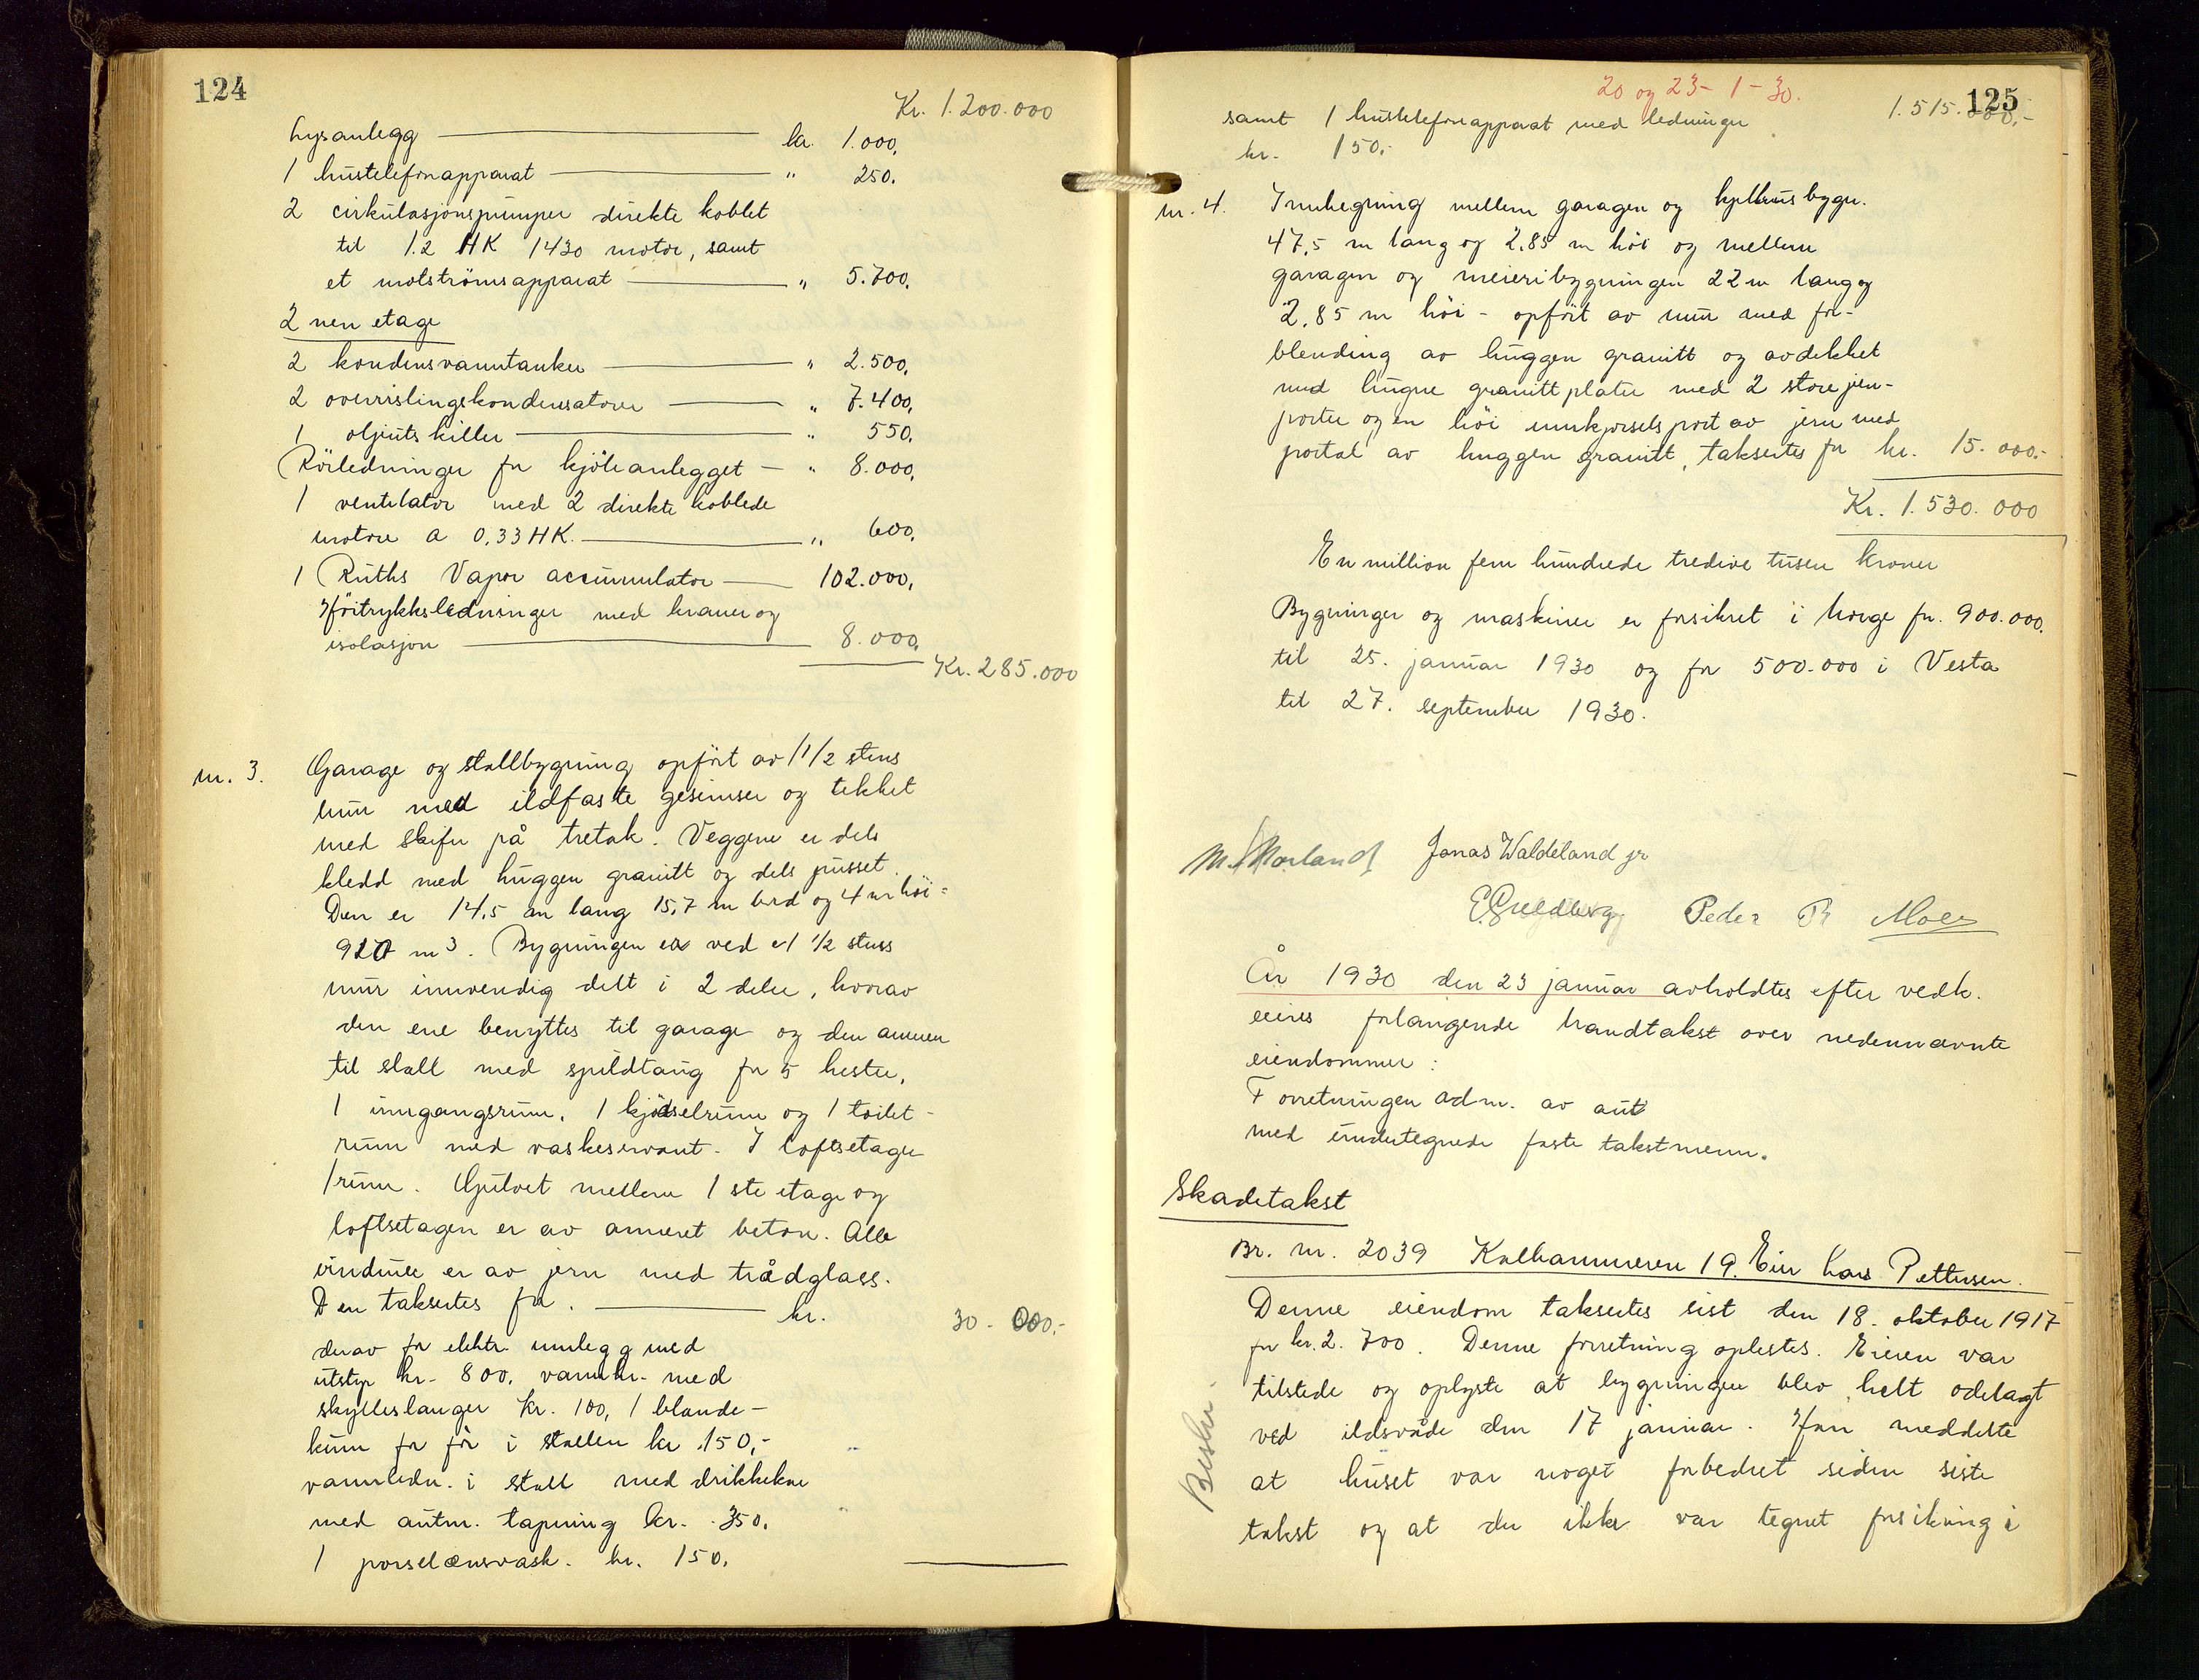 124
Kr. 1.200.000
Lysanlegg kr. 1.000.
1 hustelefonapparat " 250.
2 cirkulasjonspumper direkte koblet
til 1.2 HK 1430 motor, samt
et motströmsapparat " 5.700.
2 nen etage
2 kondensvanntanker " 2.500.
2 overrislingskondensatorer " 7.400.
1 oljeutskiller " 550.
Rörledninger for kjöleanlegget " 8.000.
1 ventilator med 2 direkte koblede
motorer a 0,33 HK. " 600.
1 Ruths Vapor accumulator 102.000.
Höitrykksledninger med kraner og
isolasjon 8.000.
Kr. 285.000
nr. 3. Garage og stallbygning opfört av 1 1/2 stens
mur med ildfaste gesimser og tekket
med skifer på tretak. Veggene er dels
kledd med huggen granitt og dels pusset.
Den er 14,5 m lang 15,7 m bred og 4 m höi =
920 m3. Bygningen er ved et 1/2 stens
mur innvendig delt i 2 deler, hvorav
den ene benyttes til garage og den annen
til stall med spildtaug for 5 hester,
1 inngangsrum, 1 kjødselrum og 1 toilet-
rum med vaskeservant. I loftsetagen
1 rum. Gulvet mellem 1 ste etage og
loftsetagen er av armert beton. Alle
vinduer er av jern med trådglass.
Den takseres for kr. 30.000.-
derav for elektr. innlegg med
utstyr kr. 800, vannkr. med
skylleslanger kr. 100, 1 blande-
kum for fôr i stallen kr. 150,-
vannledn. i stall med drikkekar
med autm. tapning kr. 350.
1 porselænsvask. kr. 150.
20 og 23-1-30.
125
1.515.000.-
samt 1 hustelefonapparat med ledninger
kr. 150.-
nr. 4. Innhegning mellem garagen og kjelhusbygn.
47,5 m lang og 2,85 m höi og mellem
garagen og meieribygningen 22 m lang og
2,85 m höi - opfört av mur med for-
blending av huggen granitt og avdekket
med hugne granittplater med 2 store jern-
porter og en höi innkjörselsport av jern med
portal av huggen granitt, takseres for kr. 15.000.-
Kr. 1.530.000
En million fem hundrede tredive tusen kroner
Bygninger og maskiner er forsikret i Norge for 900.000.
til 25. januar 1930 og for 500.000 i Vesta
til 27. september 1930.
Jonas Waldeland jr
Peder R Moe
År 1930 den 23 januar avholdtes efter vedk.
eieres forlangende branntakst over nedennævnte
eiendommer:
Forretningen adm. av aut
med undertegnede faste takstmenn.
Skadetakst
Br. nr. 2039 Kalhammeren 19. Eier Lars Pettersen.
Denne eiendom takseres sist den 18. oktober 1917
for kr. 2.700. Denne forretning oplestes. Eieren var
tilstede og oplyste at bygningen blev helt ödelagt
ved ildsvåde den 17 januar. Han meddelte
at huset var noget forbedret siden siste
takst og at der ikke var tegnet forsikring i